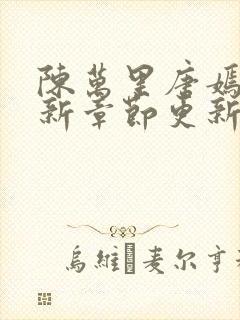 陳萬里唐嫣
新章節更新
烏維·麦尔亨